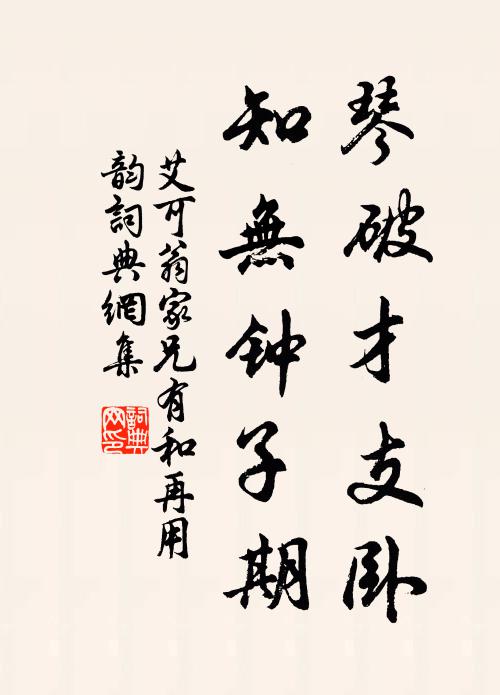 琴破才支卧
知無钟子期
艾可翁家兄有和再用
韵詞典網集
詞典
网印